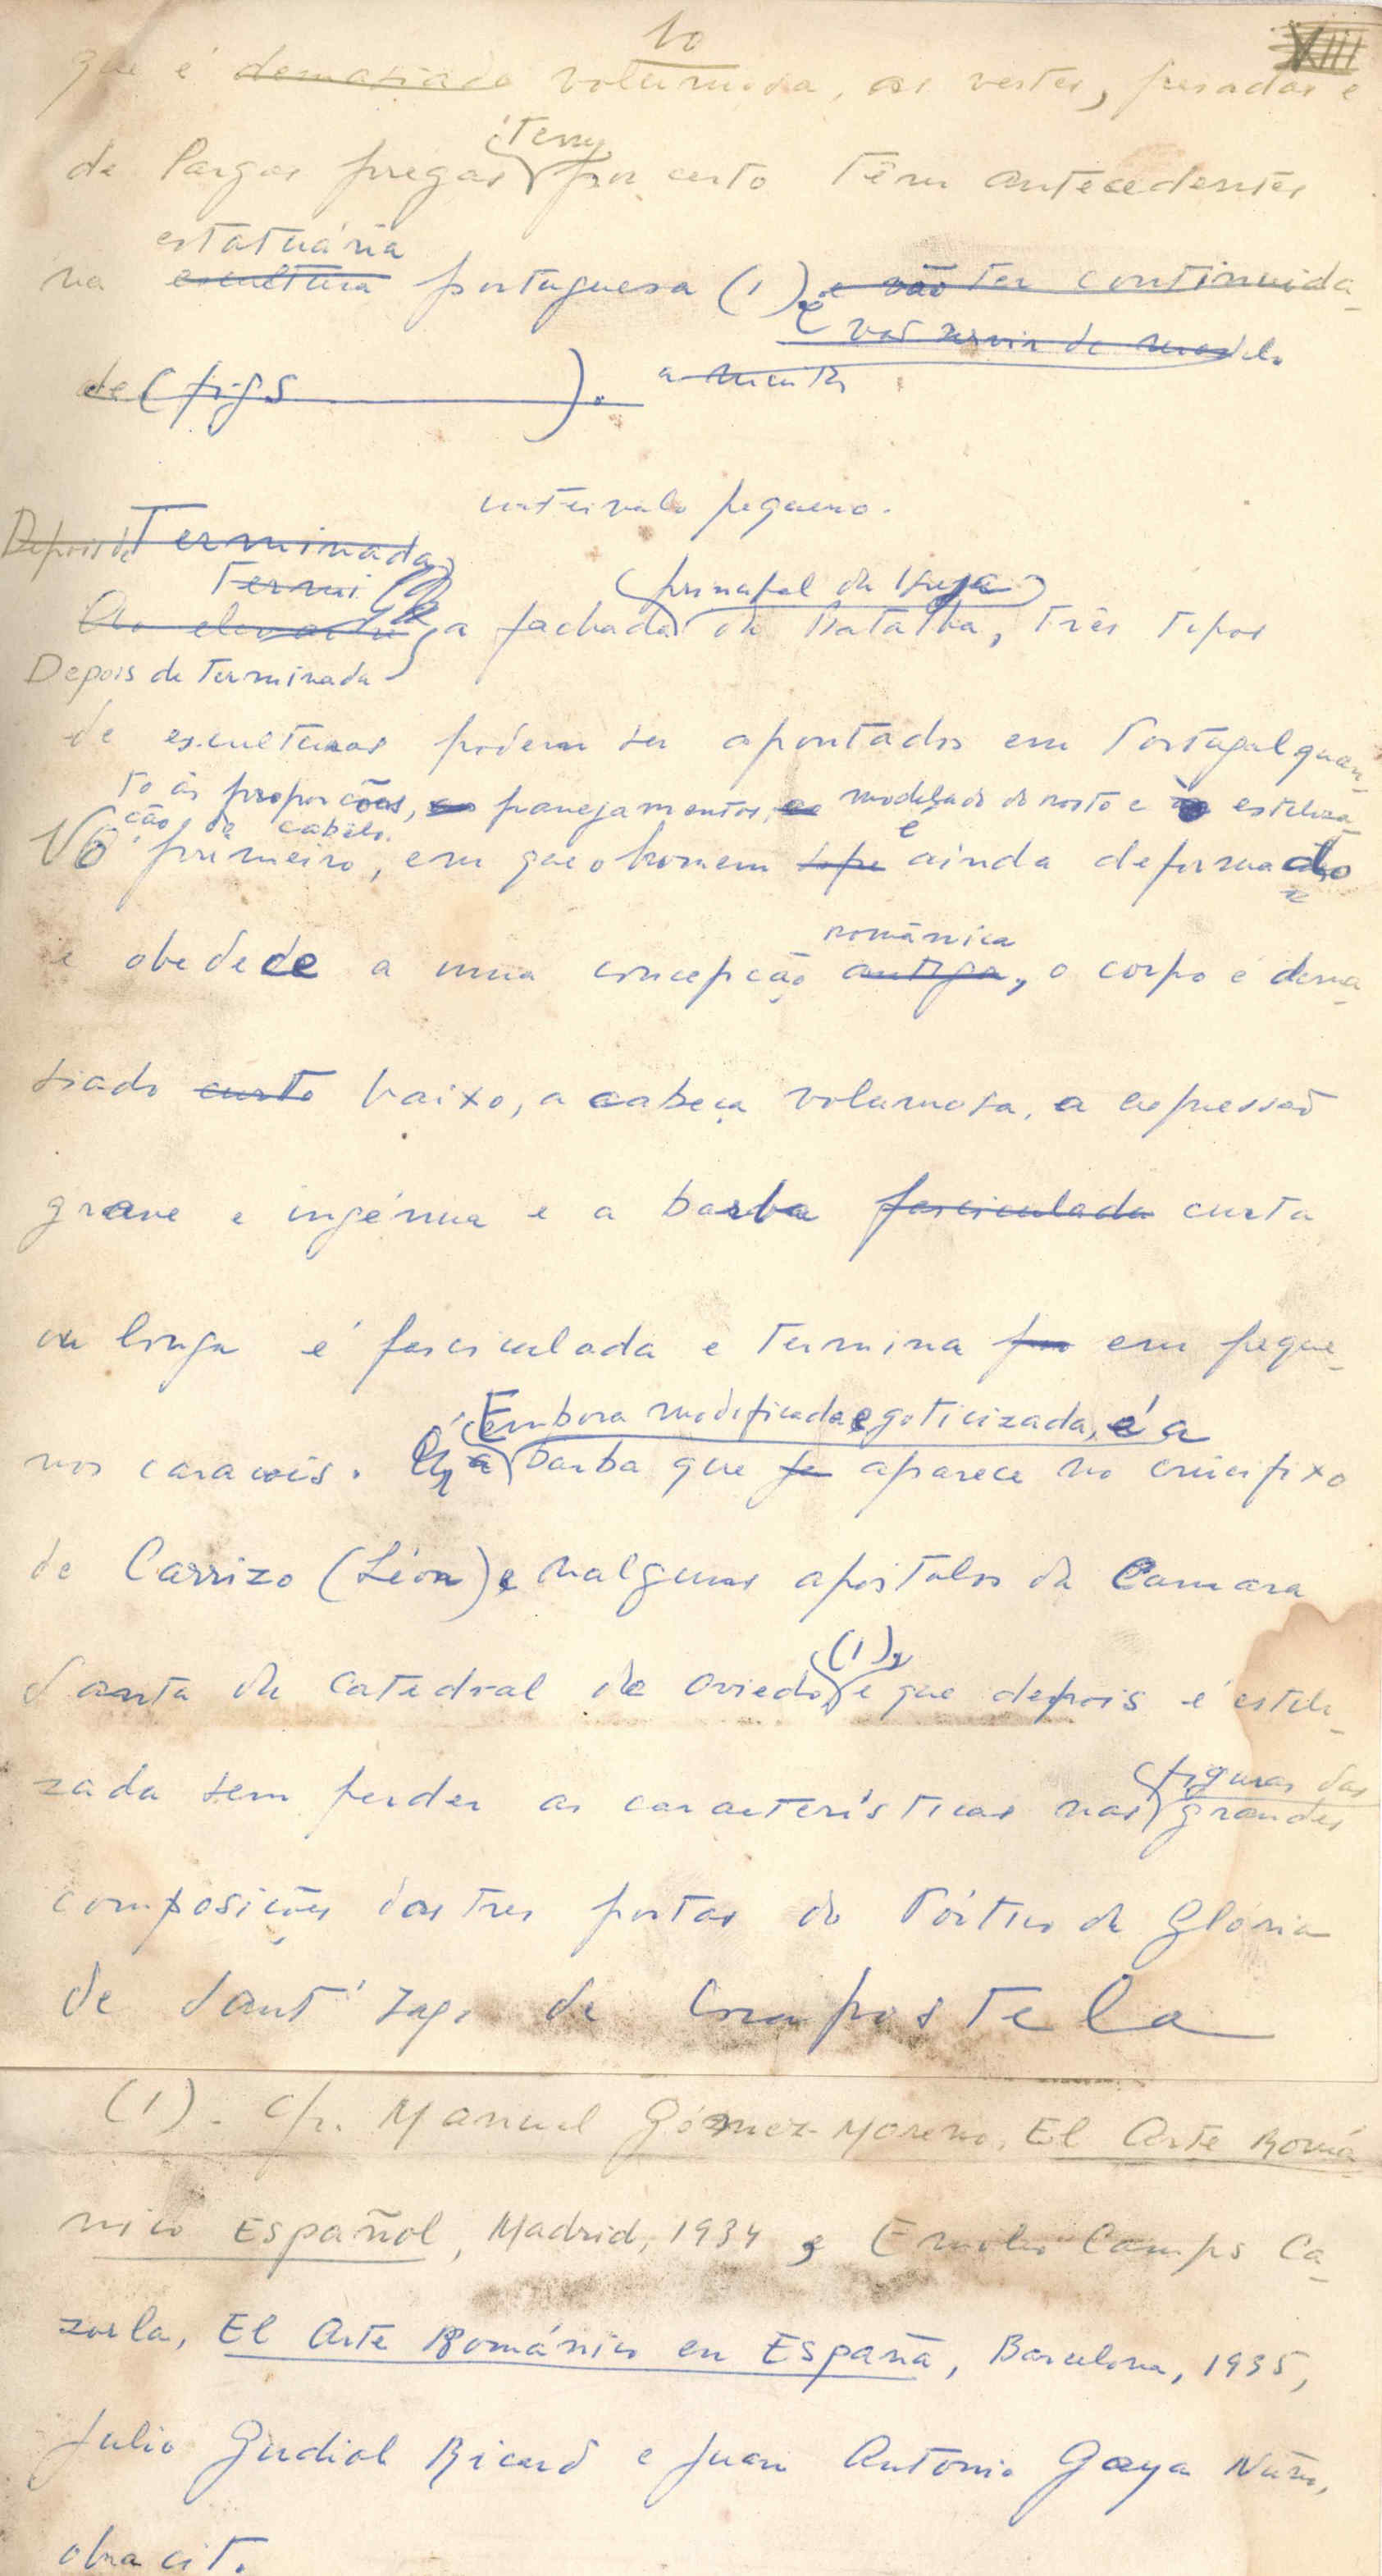 10
XIII
que é demasiado volumosa, as vestes, pesadas e
tem
de largas pregas por certo têm antecedentes
estatuária
na escultura portuguesa (1) e vão ter continuida-
e vão servir de modelo
de (figs ). a muita
intervalo pequeno.
Depois de Terminada
Termi
principal da Igreja
Ao elevar-se a fachada da Batalha, três tipos
Depois de terminada
de esculturas podem ser apontados em Portugal quan-
to às proporções, panejamentos, modelado do rosto e estiliza-
ção do cabelo.
No primeiro, em que o homem é ainda deformado
românica
e obedece a uma concepção antiga, o corpo é dema-
siado curto baixo, a cabeça volumosa, a expressão
grave e ingénua e a barba fasciculada curta
ou longa é fasciculada e termina em peque-
Embora modificada e goticizada, é a
nos caracois. a barba que aparece no crucifixo
de Carrizo (Léon) e nalguns apóstolos da Camara
(1),
Santa da Catedral de Oviedo e que depois é estili-
figuras das
zada sem perder as caracterís ticas nas grandes
composições das tres portas do Pórtico da Glória
de Sant'Iago de Compostela
(1). Cfr. Manuel Gómez-Moreno, El Arte Romá-
nico Español, Madrid, 1934, Emilio Camps Ca-
zorla, El Arte Románico en España, Barcelona, 1935,
Julio Gudiol Ricard e Juan Antonio Gaya Nuño,
obra cit.